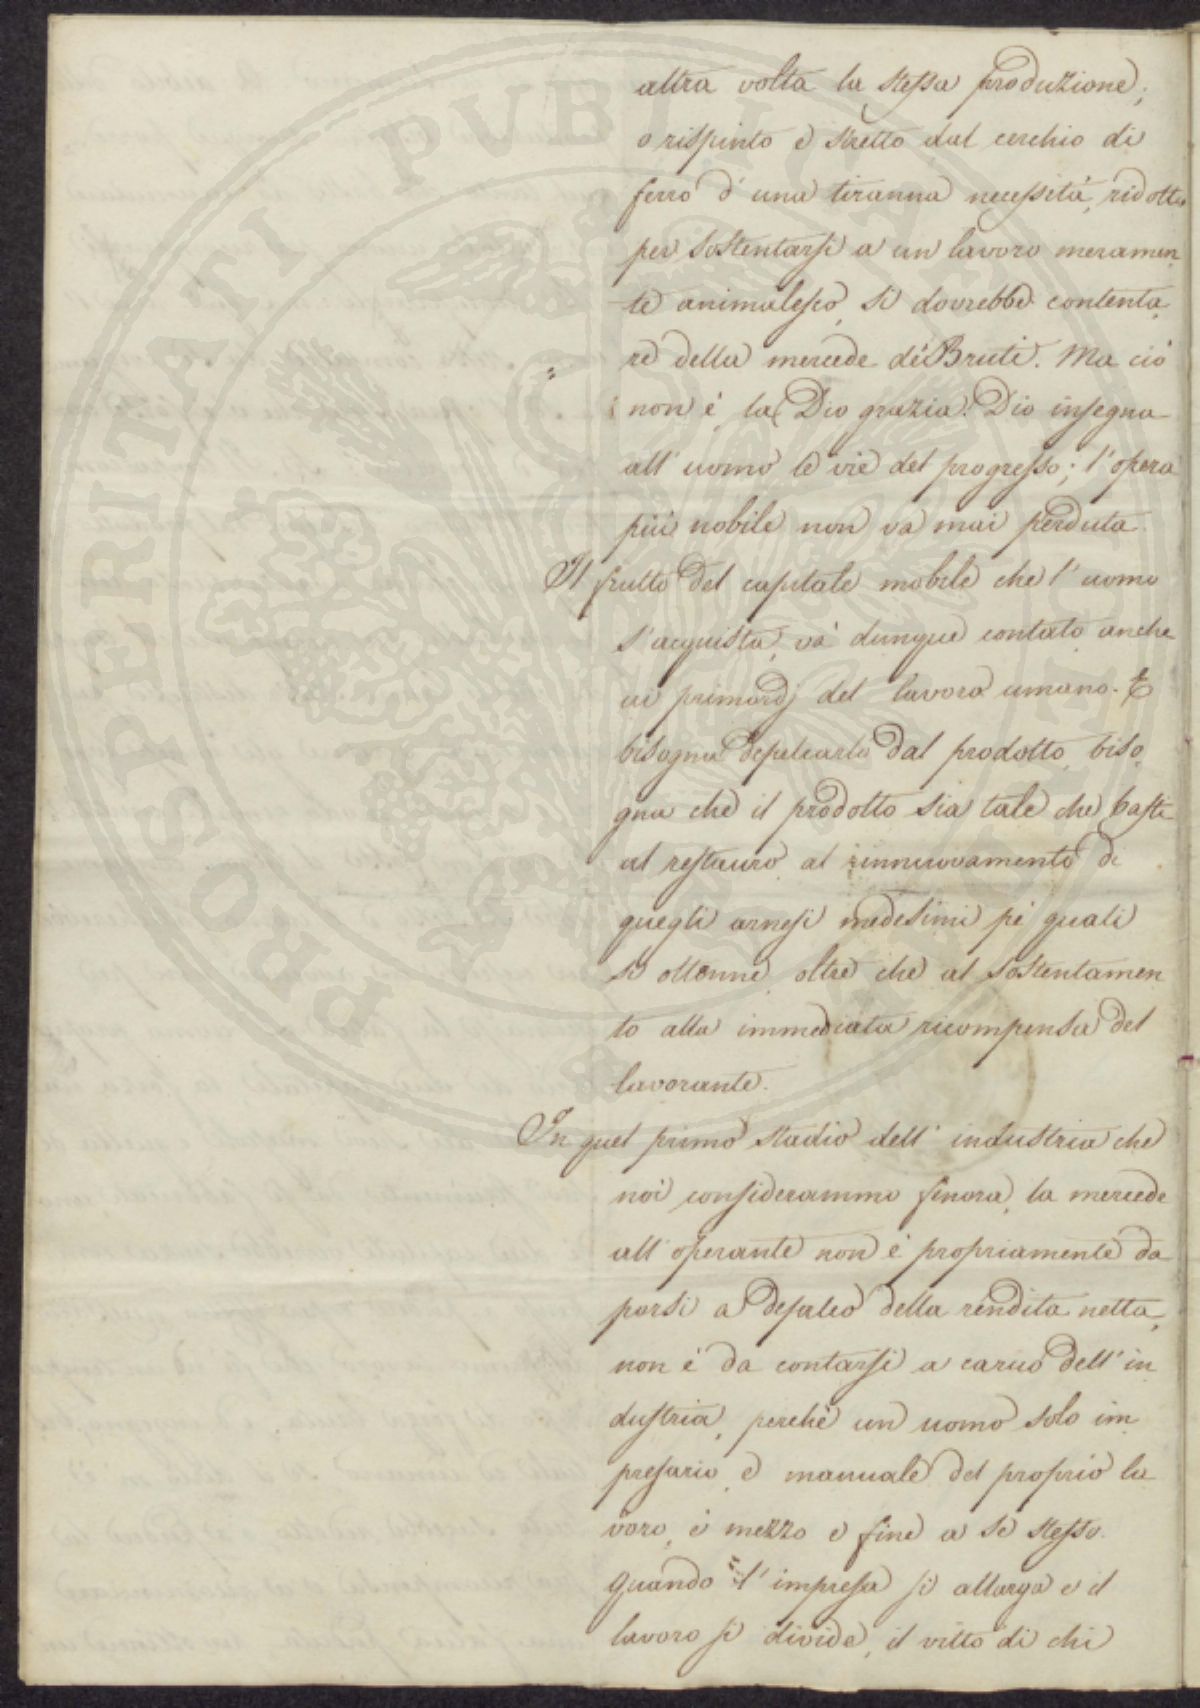 altra volta la stessa produzione;
o rispinto e stretto dal cerchio di
ferro d'una tiranna necessità, ridotto
per sostentarsi a un lavoro meramen
te animalesco, si dovrebbe contenta
re della mercede de' Bruti. Ma ciò
non è, la Dio grazia! Dio insegna
all' uomo le vie del progresso; l'opera
più nobile non va mai perduta.
Il frutto del capitale mobile che l' uomo
s'acquista, va dunque contato anche
ai primordj del lavoro umano. E
bisogna defalcarlo dal prodotto, biso
gna che il prodotto sia tale che basti
al restauro, al rinnuovamento di
quegli arnesi medesimi pe' quali
si ottenne, oltre che al sostentamen
to alla immediata ricompensa del
lavorante.
In quel primo stadio dell' industria che
noi considerammo finora, la mercede
all' operante non è propriamente da
porsi a defalco della rendita netta,
non è da contarsi a carico dell' in
dustria, perchè un uomo solo im
presario e manuale del proprio la
voro, è mezzo e fine a se stesso.
Quando l' impresa si allarga e il
lavoro si divide, il vitto di chi
PROSPERITATI PUBLICAE